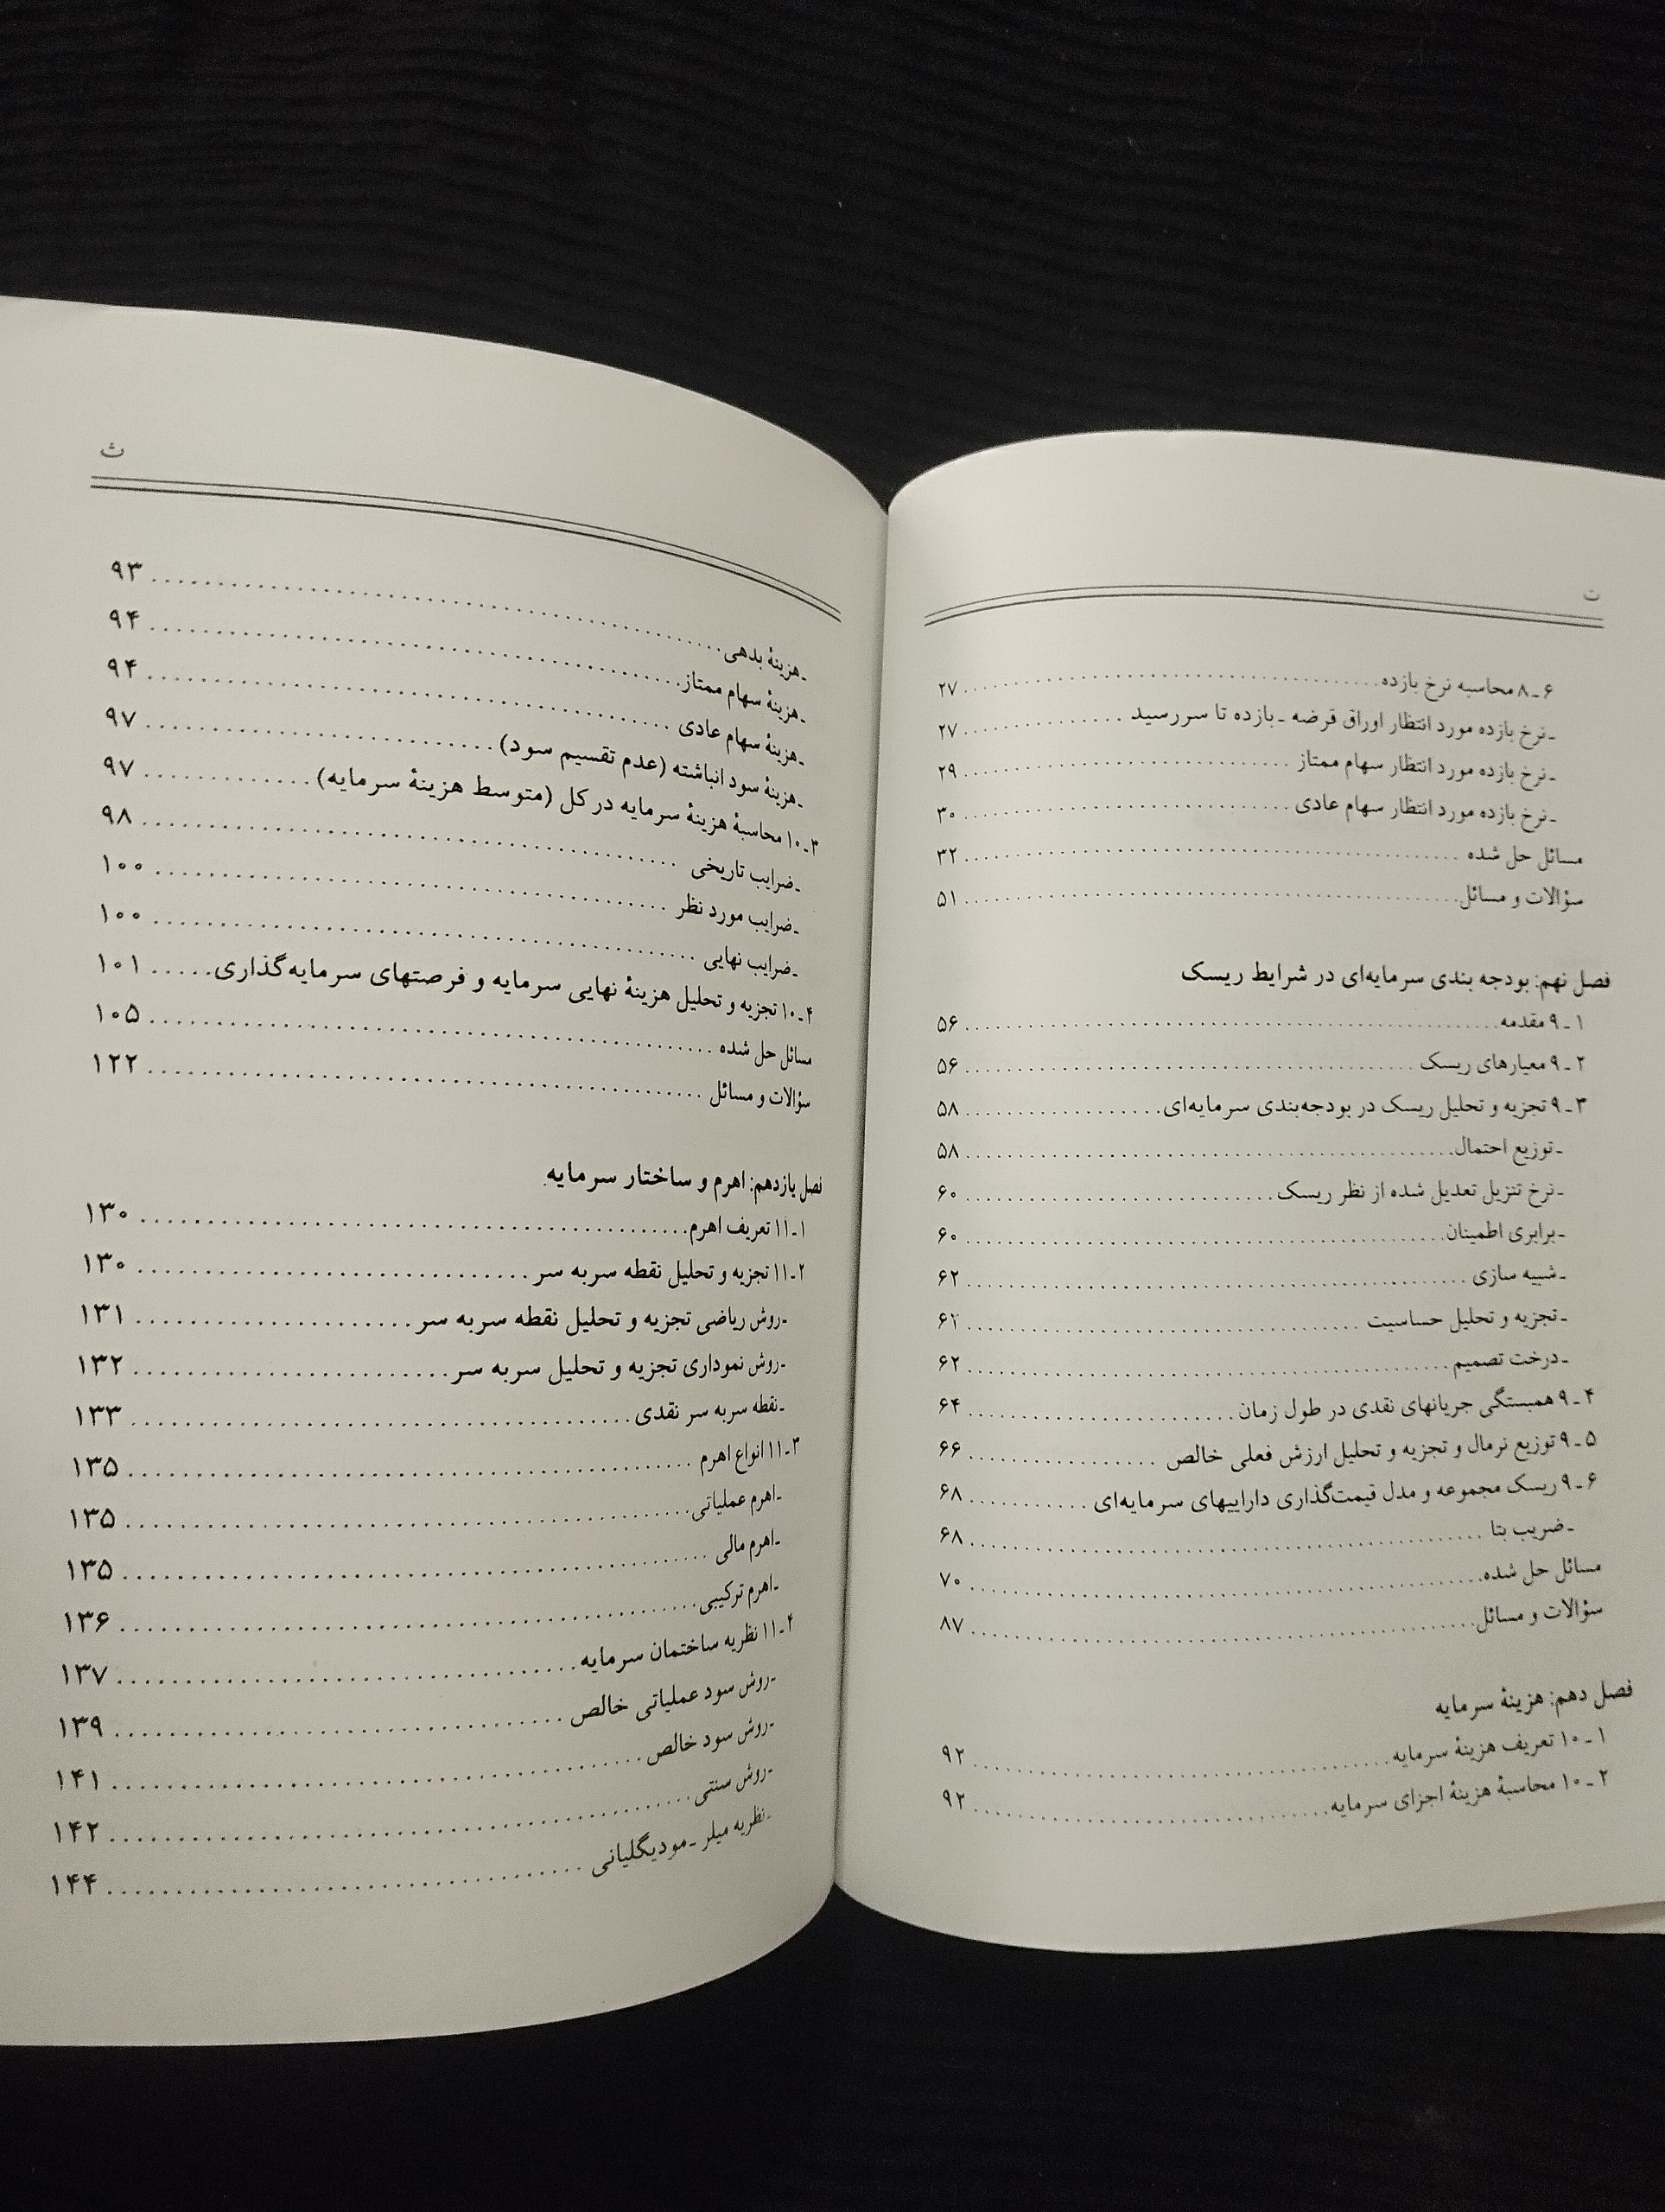 ت
۶ـ۸ محاسبه نرخ بازده ........ ۲۷
ـ نرخ بازده مورد انتظار اوراق قرضه ـ بازده تا سررسید ........ ۲۷
ـ نرخ بازده مورد انتظار سهام ممتاز ........ ۲۹
ـ نرخ بازده مورد انتظار سهام عادی ........ ۳۰
مسائل حل شده ........ ۳۲
سؤالات و مسائل ........ ۵۱
فصل نهم: بودجه بندی سرمایه‌ای در شرایط ریسک
۱ـ۹ مقدمه ........ ۵۶
۲ـ۹ معیارهای ریسک ........ ۵۶
۳ـ۹ تجزیه و تحلیل ریسک در بودجه‌بندی سرمایه‌ای ........ ۵۸
ـ توزیع احتمال ........ ۵۸
ـ نرخ تنزیل تعدیل شده از نظر ریسک ........ ۶۰
ـ برابری اطمینان ........ ۶۰
ـ شبیه سازی ........ ۶۲
ـ تجزیه و تحلیل حساسیت ........ ۶۲
ـ درخت تصمیم ........ ۶۲
۴ـ۹ همبستگی جریانهای نقدی در طول زمان ........ ۶۴
۵ـ۹ توزیع نرمال و تجزیه و تحلیل ارزش فعلی خالص ........ ۶۶
۶ـ۹ ریسک مجموعه و مدل قیمت‌گذاری داراییهای سرمایه‌ای ........ ۶۸
ـ ضریب بتا ........ ۶۸
مسائل حل شده ........ ۷۰
سؤالات و مسائل ........ ۸۷
فصل دهم: هزینهٔ سرمایه
۱ـ۱۰ تعریف هزینهٔ سرمایه ........ ۹۲
۲ـ۱۰ محاسبهٔ هزینهٔ اجزای سرمایه ........ ۹۲
ث
ـ هزینهٔ بدهی ........ ۹۳
ـ هزینهٔ سهام ممتاز ........ ۹۴
ـ هزینهٔ سهام عادی ........ ۹۴
ـ هزینهٔ سود انباشته (عدم تقسیم سود) ........ ۹۷
۳ـ۱۰ محاسبهٔ هزینهٔ سرمایه در کل (متوسط هزینهٔ سرمایه) ........ ۹۷
ـ ضرایب تاریخی ........ ۹۸
ـ ضرایب مورد نظر ........ ۱۰۰
ـ ضرایب نهایی ........ ۱۰۰
۴ـ۱۰ تجزیه و تحلیل هزینهٔ نهایی سرمایه و فرصتهای سرمایه‌گذاری ..... ۱۰۱
مسائل حل شده ........ ۱۰۵
سؤالات و مسائل ........ ۱۲۲
فصل یازدهم: اهرم و ساختار سرمایه
۱ـ۱۱ تعریف اهرم ........ ۱۳۰
۲ـ۱۱ تجزیه و تحلیل نقطه سربه سر ........ ۱۳۰
ـ روش ریاضی تجزیه و تحلیل نقطه سربه سر ........ ۱۳۱
ـ روش نموداری تجزیه و تحلیل سربه سر ........ ۱۳۲
ـ نقطه سربه سر نقدی ........ ۱۳۳
۳ـ۱۱ انواع اهرم ........ ۱۳۵
ـ اهرم عملیاتی ........ ۱۳۵
ـ اهرم مالی ........ ۱۳۵
ـ اهرم ترکیبی ........ ۱۳۶
۴ـ۱۱ نظریه ساختمان سرمایه ........ ۱۳۷
ـ روش سود عملیاتی خالص ........ ۱۳۹
ـ روش سود خالص ........ ۱۴۱
ـ روش سنتی ........ ۱۴۲
ـ نظریه میلر ـ مودیگلیانی ........ ۱۴۴